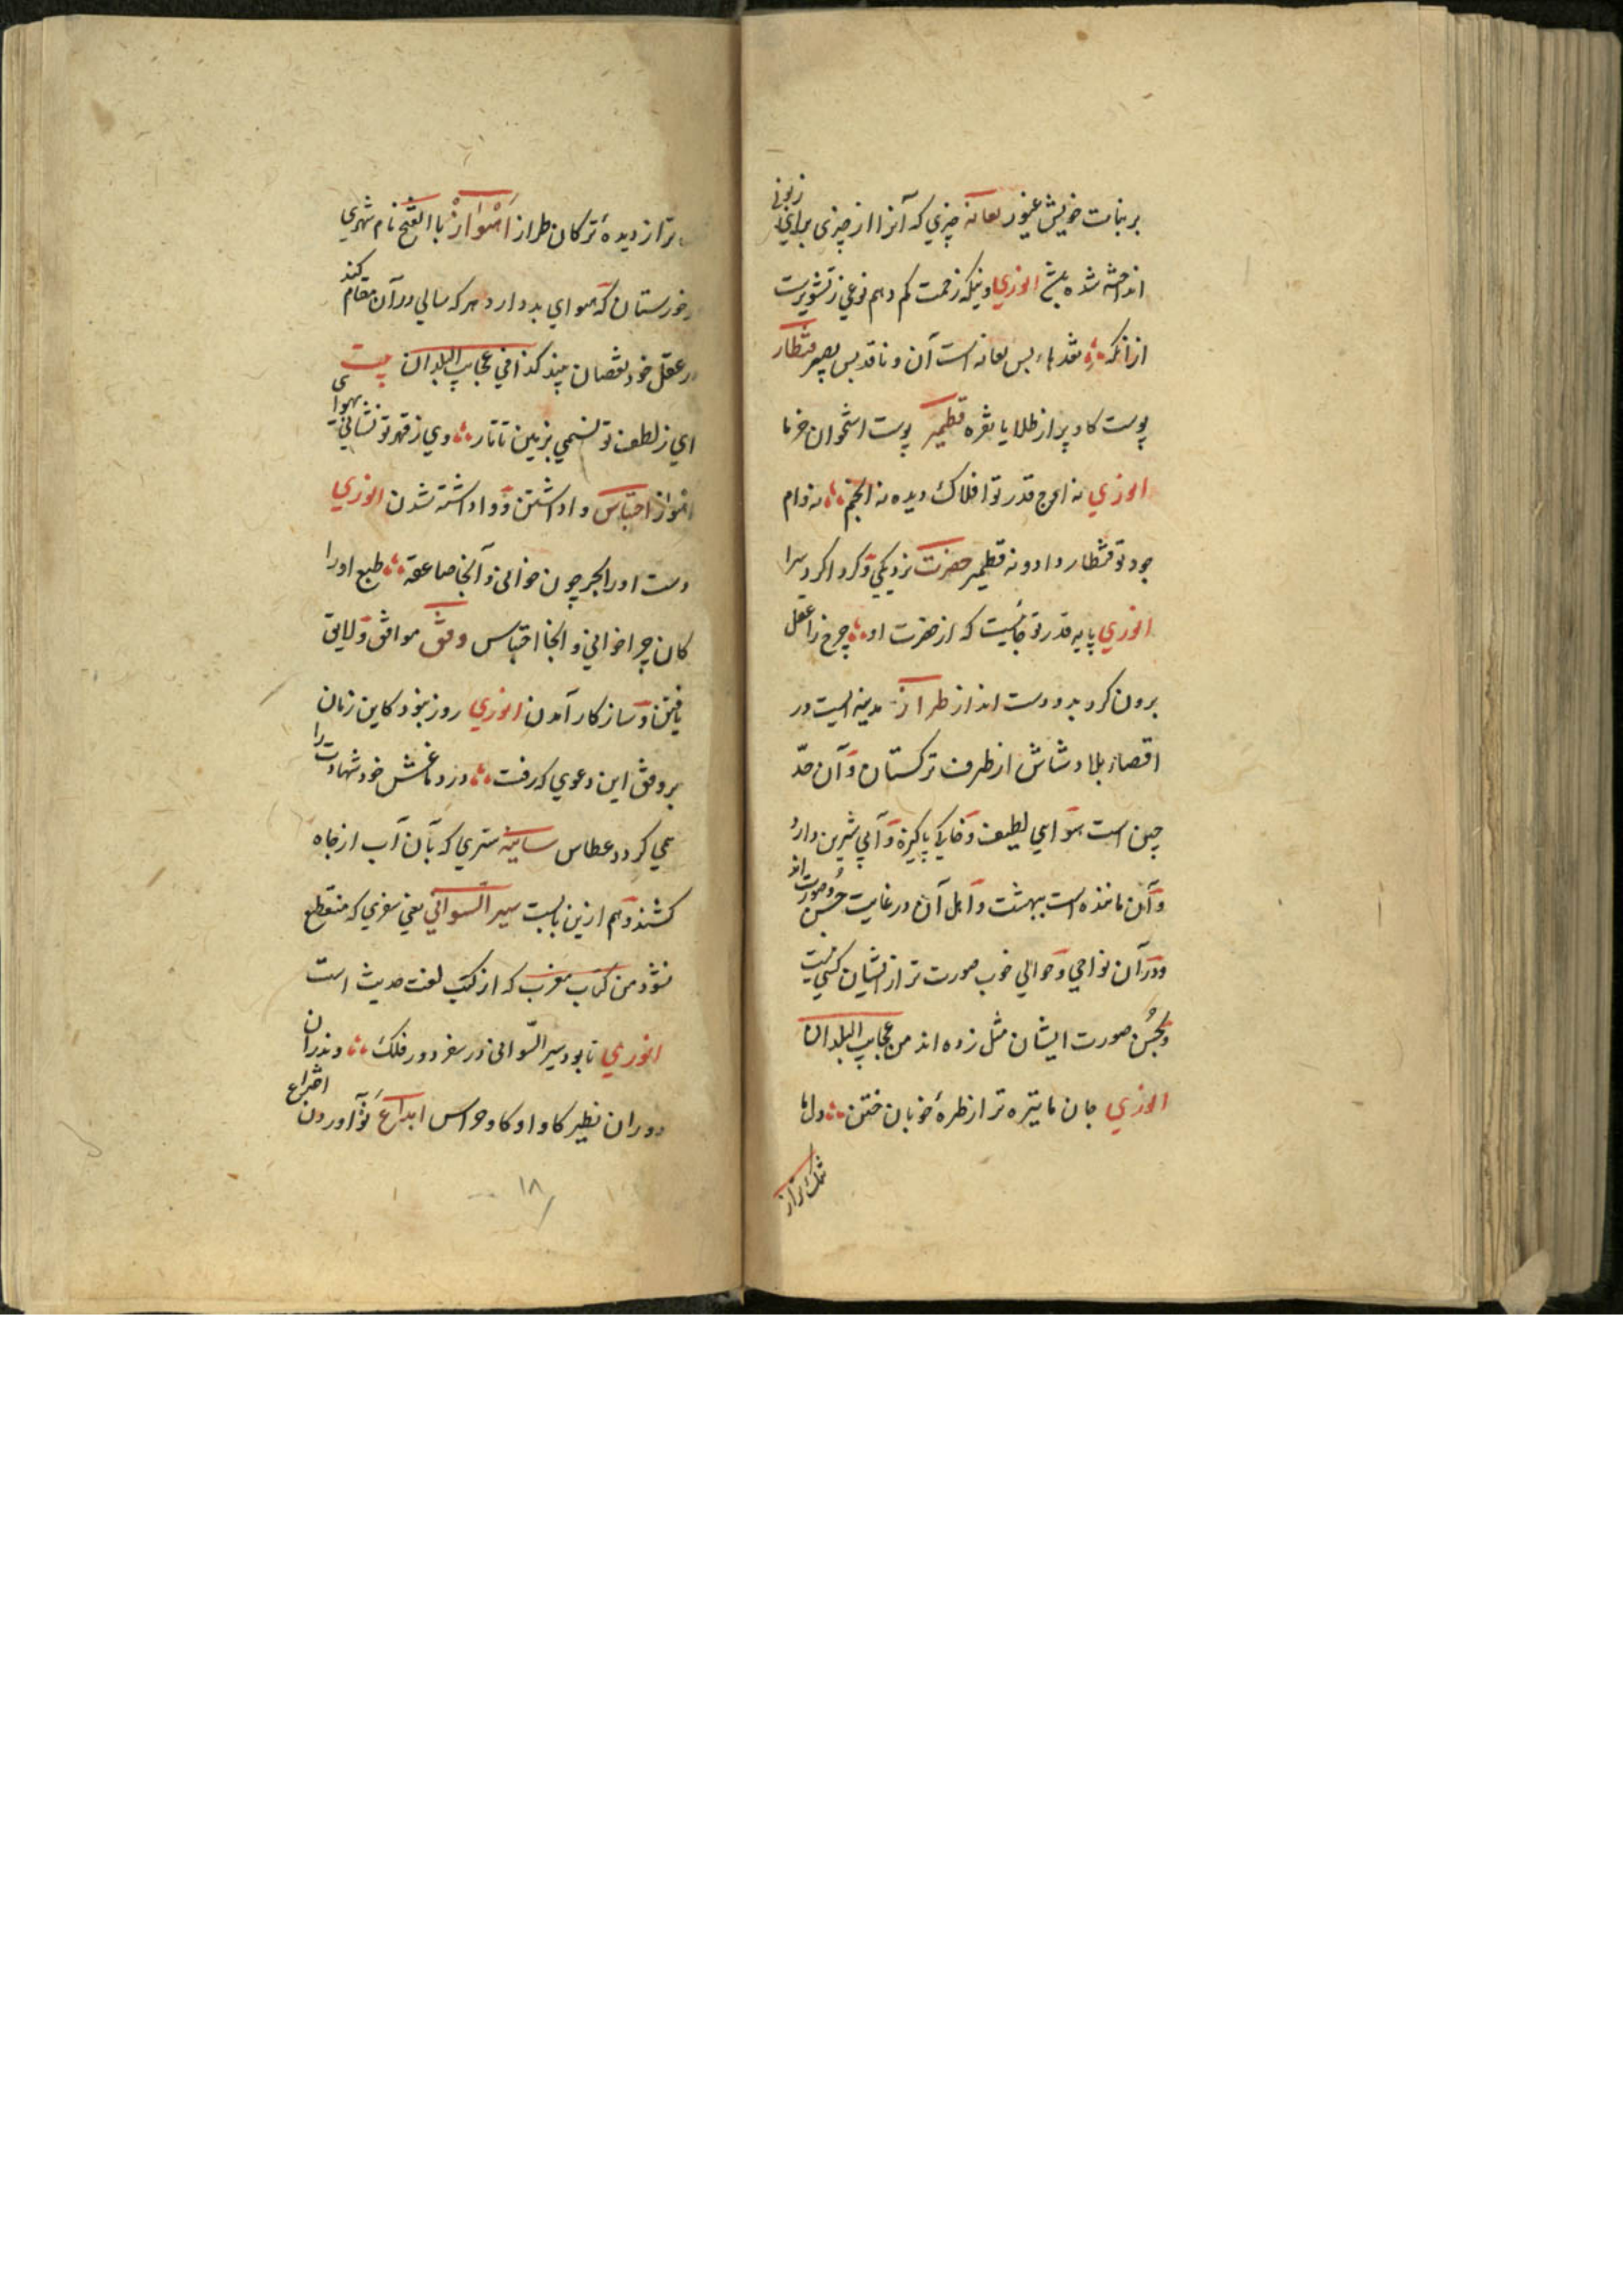 بر بنات خویش غیور نفایه چیزی که آنرا از چیزی برای زبونی
انداخته شده بیخ انوری اینکه زحمت کم دهم نوعی ز تشویرست
ازانکه نقدها بس نفایه است آن و ناقد بس بصیر قنطار
پوست کاو پر از طلا یا نقره قطمیر پوست استخوان خرما
انوری نه اوج قدر تو افلاک دیده نه انجم نه وام
جود تو قنطار داد و نه قطمیر حضرت نزدیکی و کرداکرد سرا
انوری پایه قدر تو جائیست که از حضرت او چرخ را عقل
برون کرد بدو دست انداز طراز مدینه ایست در
اقصاء بلاد شاش از طرف ترکستان و آن حدّ
چین است هوایی لطیف و خاکی پاکیزه و آبی شیرین دارد
و آن ماننده است ببهشت و اهل آن در غایت حُسن و صورت اند
و در آن نواحی و حوالی خوب صورت تر از ایشان کسی نیست
و بحُسن صورت ایشان مثل زده اند من عجایب البلدان
انوری جان ها تیره تر از طره خوبان ختن دل ها
تنک تر از
تر از دیدهٔ ترکان طراز اَهْوازْ با الفتح نام شهری
خوزستان که هوای بد دارد هر که سالی در آن مقام کند
در عقل خود نقصان بیند کذا فی عجایب البلدان بیت
ای ز لطف تو نسیمی بزمین تاتار وی ز قهر تو نشانی بهوای
اهواز احتباس وا داشتن و وا داشته شدن انوری
دست او را بحر چون خوانی و آنجا صاعقه طبع او را
کان چرا خوانی و آنجا احتباس وفق موافق و لایق
یافتن و ساز کار آمدن انوری روز نبود کاین زبان
بر وفق این دعوی که رفت در دماغش خود شهادت را
می کردد عطاس سانیه شتری که بآن آب از چاه
کشند و هم ازین بابست سیر السّوانی یعنی سفری که منقطع
نشود من کتاب مغرب که از کتب لغت حدیث است
انوری تا بود سیر السّوانی در سفر دور فلک وندران
دوران نظیر کاو او کاو خراس ابداع نَو آوردن
اختراع
۱۸